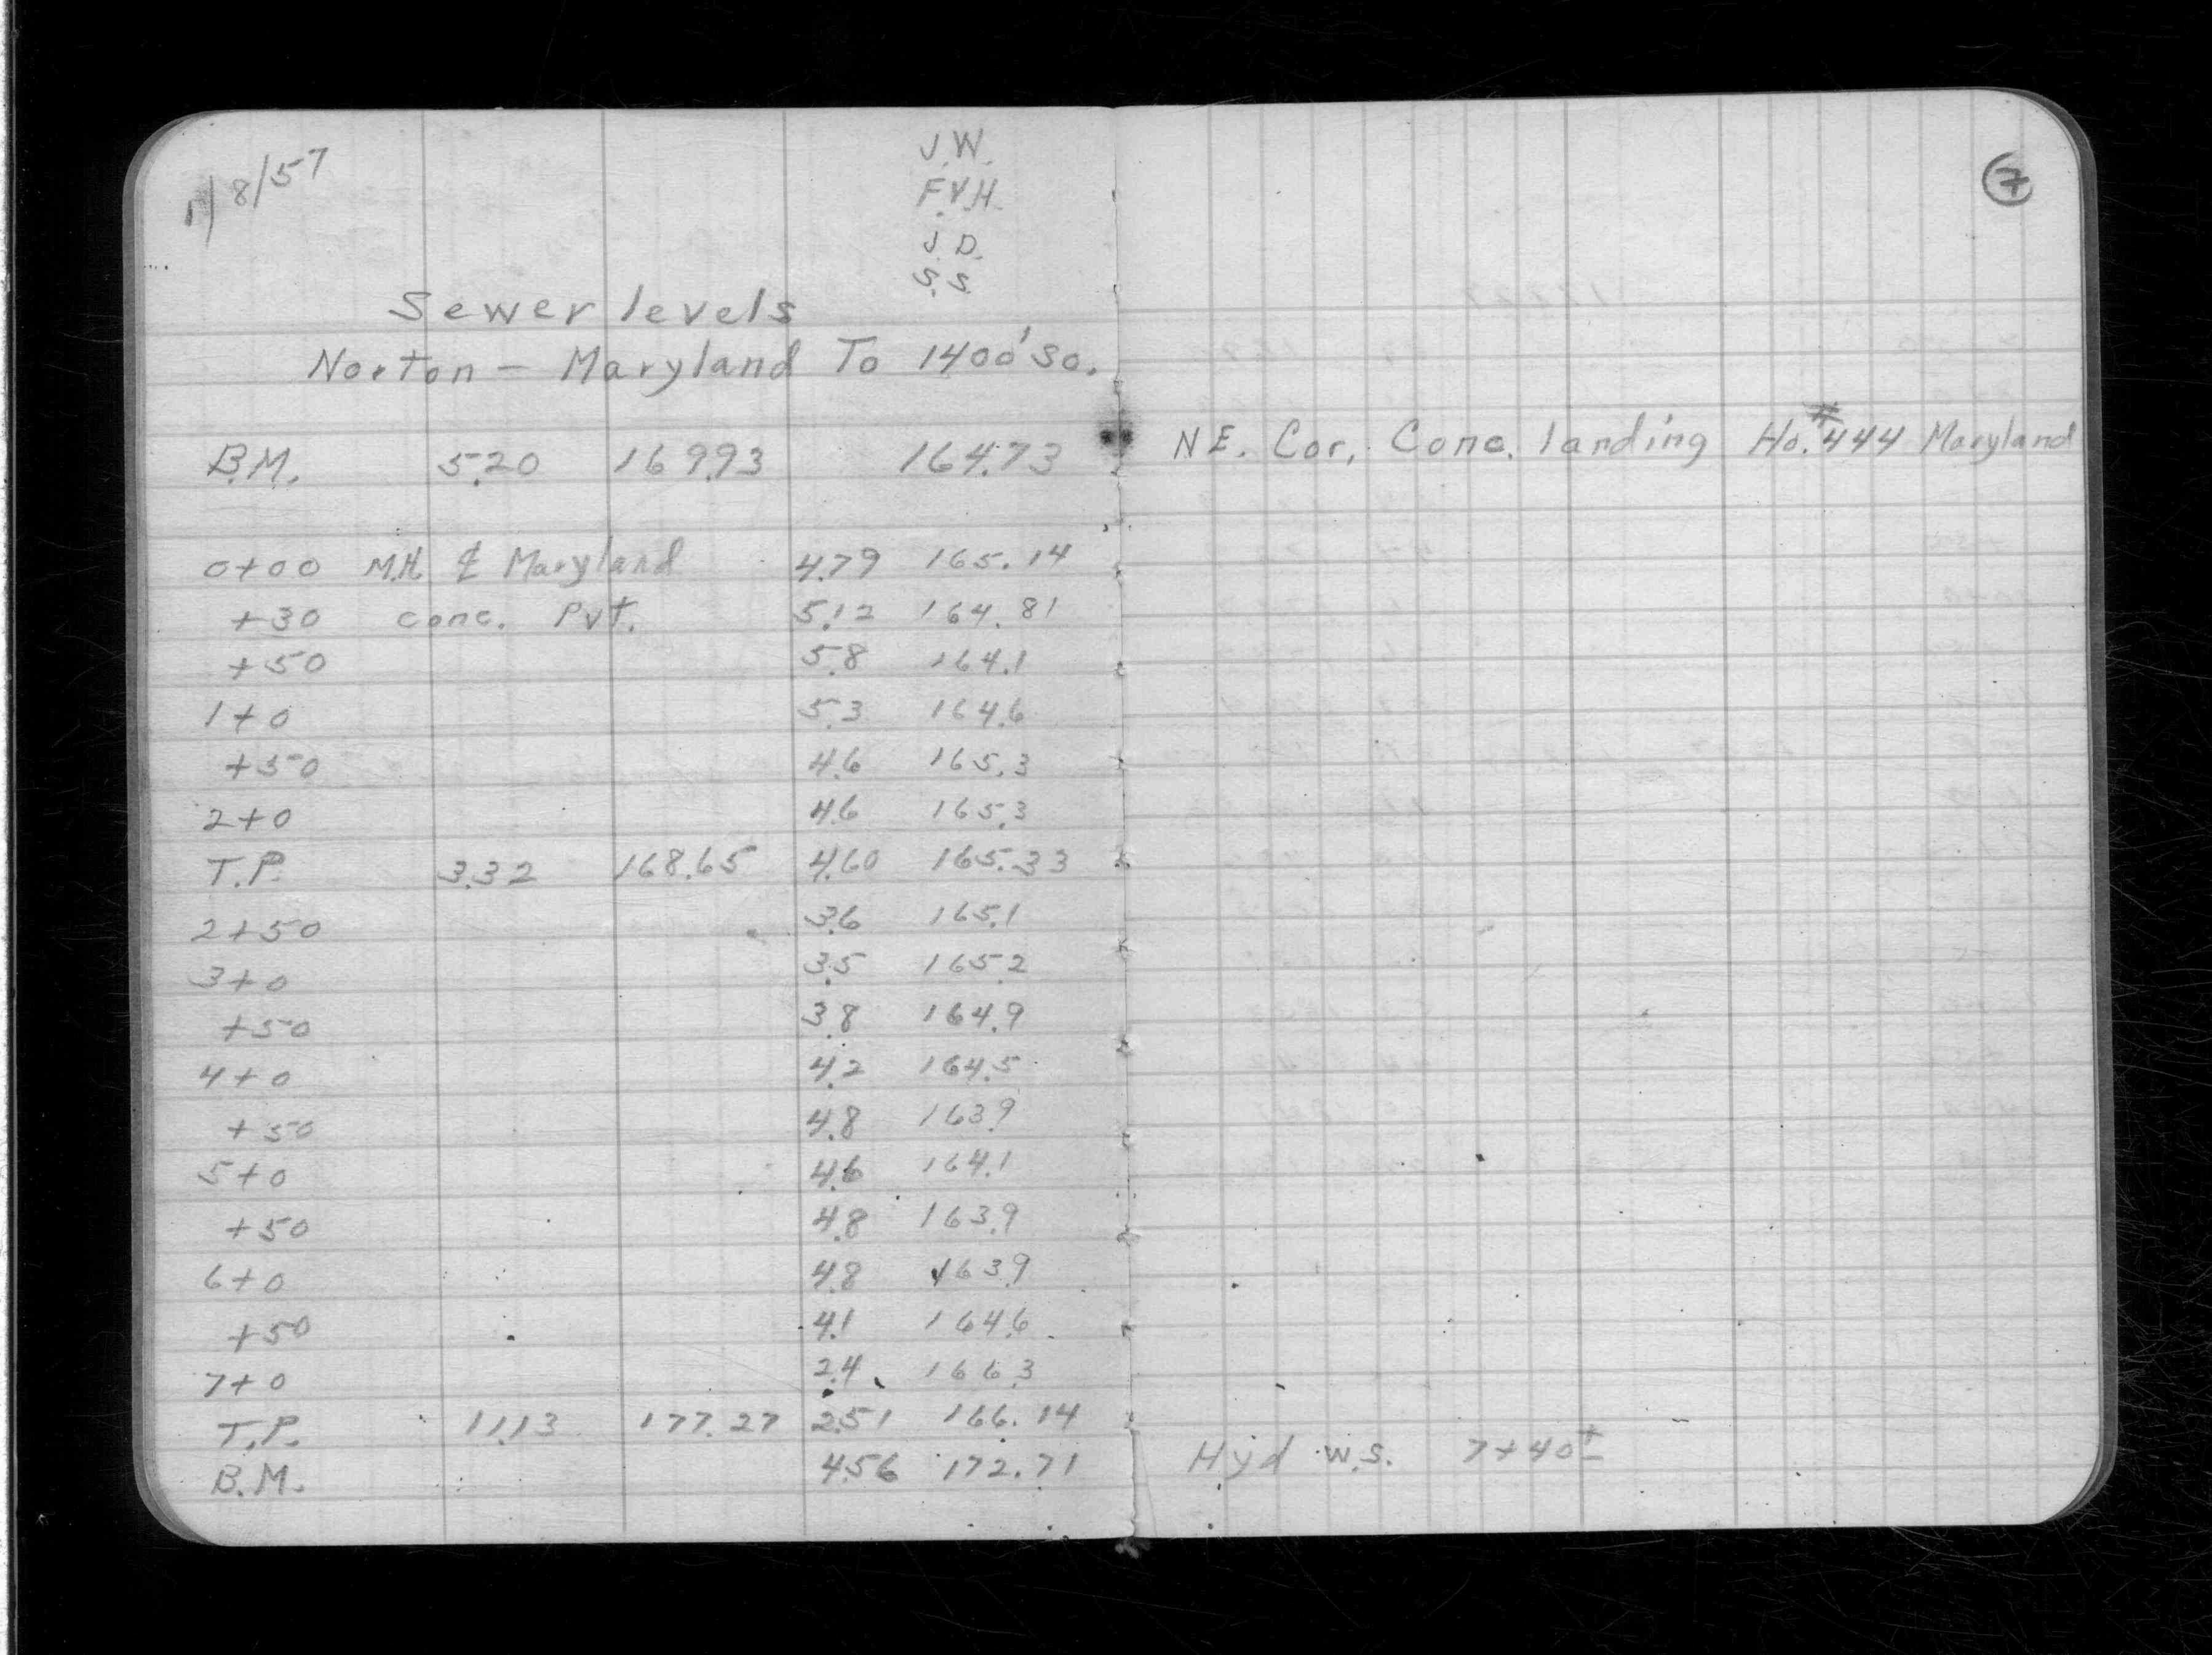 1/8/57
J.W.
F.V.H.
J.D.
S.S.
7
Sewer levels
Norton - Maryland To 1400' So.
B.M. 5.20 169.93 164.73 NE. Cor. Conc. landing Ho. #444 Maryland
0+00 M.H. ℄ Maryland 4.79 165.14
+30 conc. Pvt. 5.12 164.81
+50 5.8 164.1
1+0 5.3 164.6
+50 4.6 165.3
2+0 4.6 165.3
T.P. 3.32 168.65 4.60 165.33
2+50 3.6 165.1
3+0 3.5 165.2
+50 3.8 164.9
4+0 4.2 164.5
+50 4.8 163.9
5+0 4.6 164.1
+50 4.8 163.9
6+0 4.8 163.9
+50 4.1 164.6
7+0 2.4 166.3
T.P. 11.13 177.27 2.51 166.14
B.M. 4.56 172.71 Hyd w.s. 7+40±